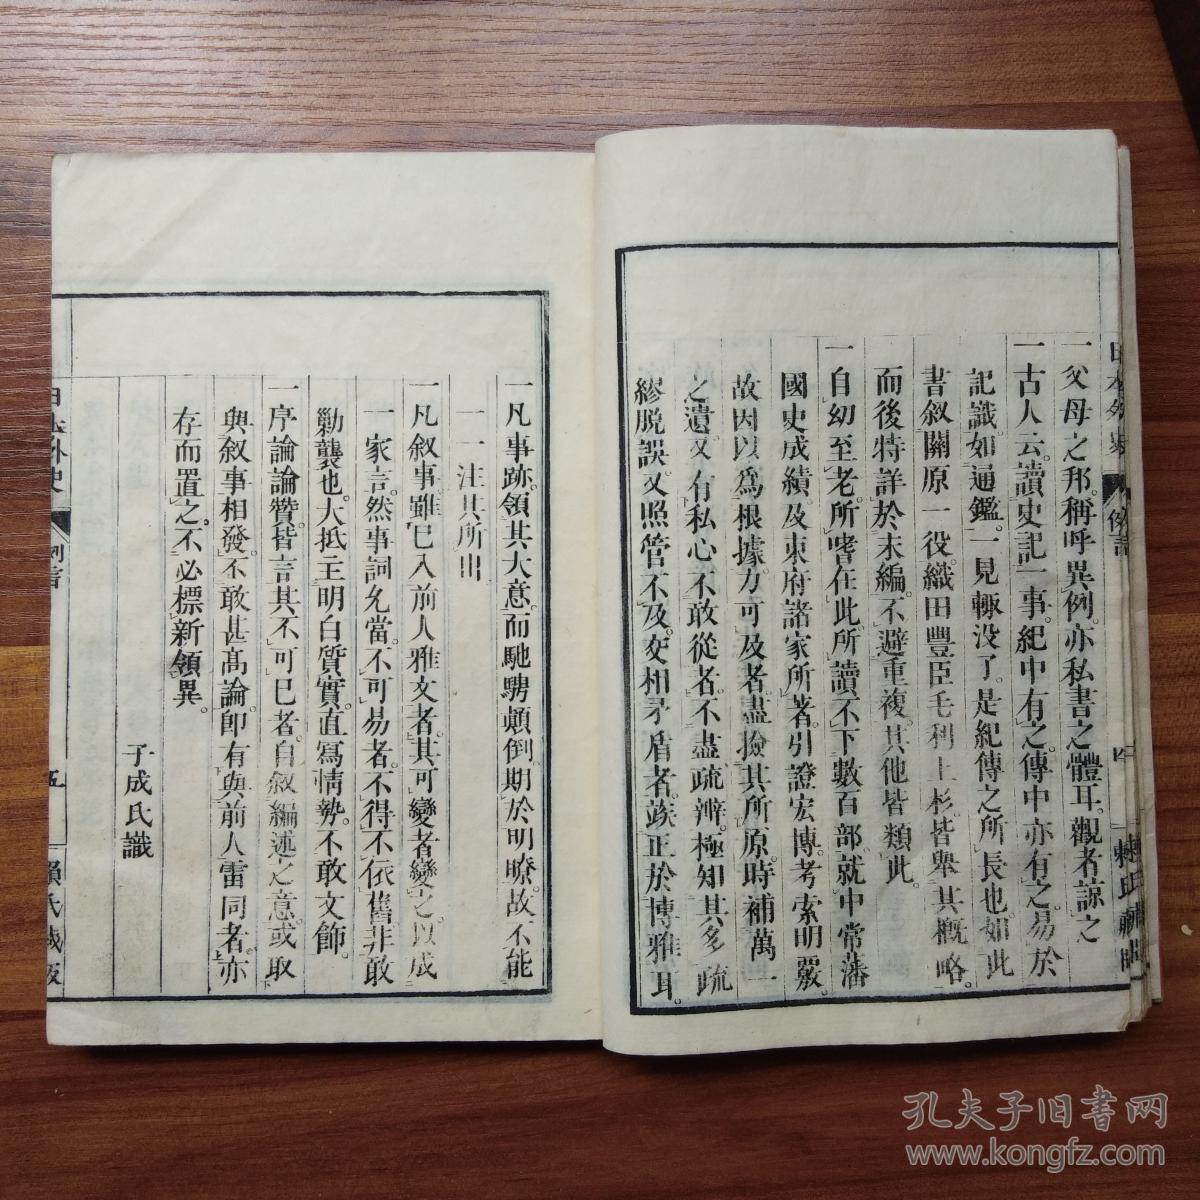 一父母之邦稱呼異例亦私書之體耳觀者諒之
一古人云讀史記一事紀中有之傳中亦有之易於
記識如通鑑一見輙没了是紀傳之所長也如此
書叙關原一役織田豐臣毛利上杉皆舉其概略
而後特詳於末編不避重複其他皆類此
一自幼至老所嗜在此所讀不下數百部就中常藩
國史成績及東府諸家所著引證宏博考索明覈
故因以爲根據力可及者盡撿其所原時補萬一
之遺又有私心不敢從者不盡疏辨極知其多疏
繆脱誤又照管不及交相矛盾者跂正於博雅耳
日本外史 例言 四 賴氏藏版
一凡事跡領其大意而馳騁頓倒期於明瞭故不能
一一注其所出
一凡叙事雖已入前人雅文者其可變者變之以成
一家言然事詞允當不可易者不得不依舊非敢
勦襲也大抵主明白質實直寫情勢不敢文飾
一序論論贊皆言其不可已者自叙編述之意或取
與叙事相發不敢甚高論即有與前人雷同者亦
存而置之不必標新領異
子成氏識
日本外史 例言 五 賴氏藏版
孔夫子旧书网
www.kongfz.com